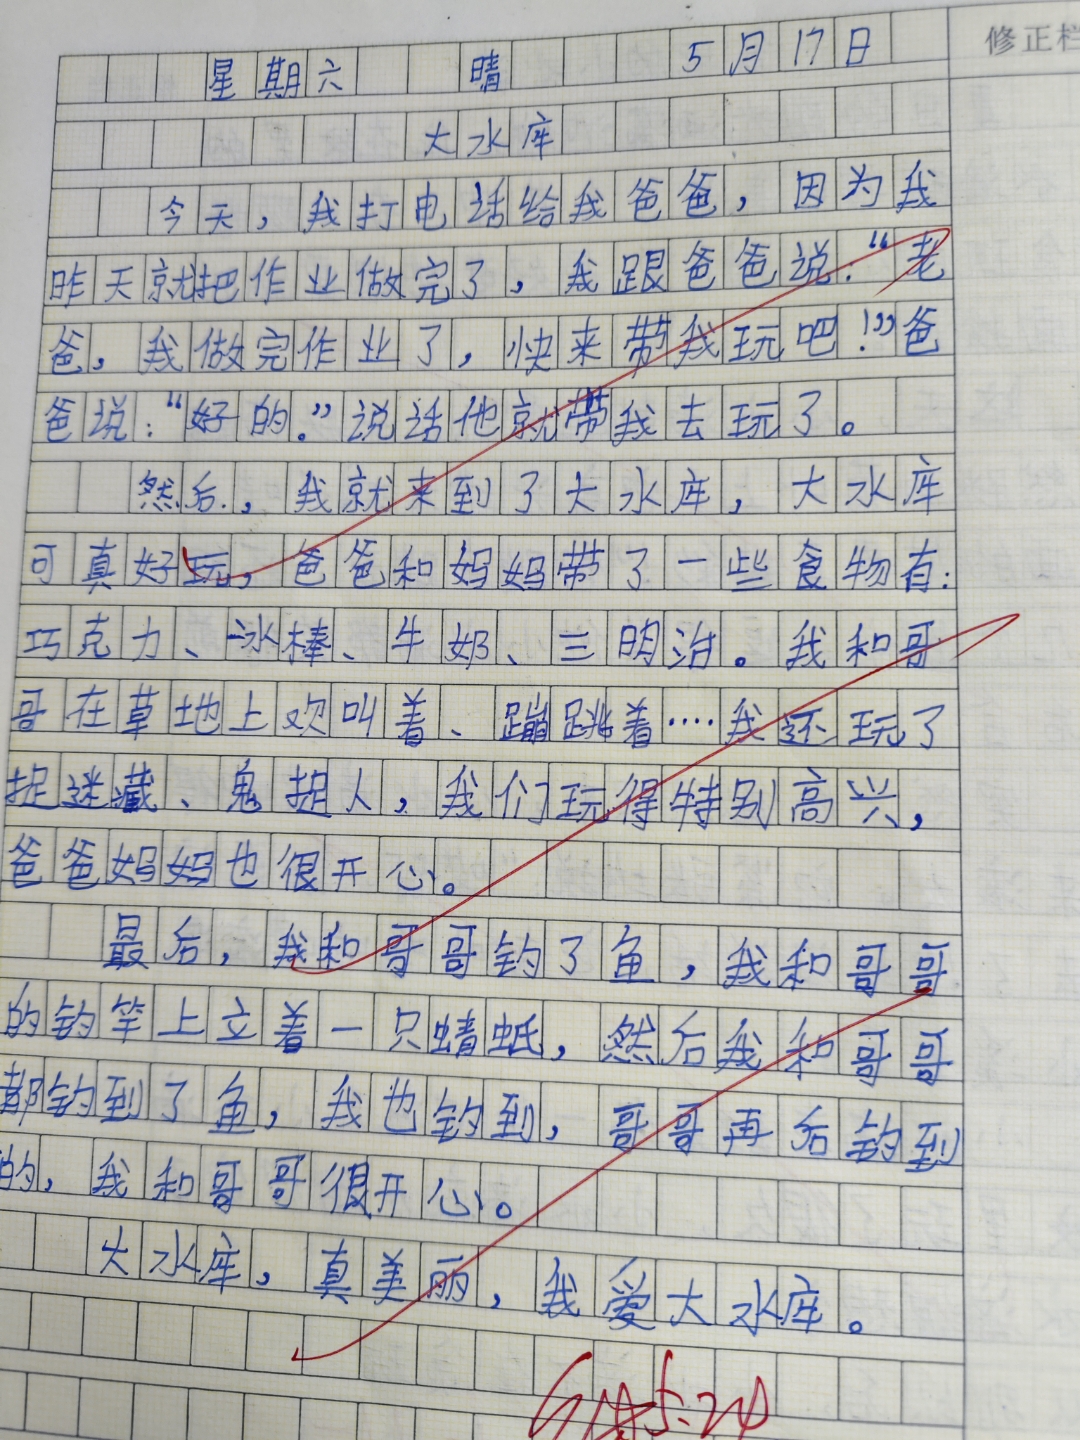 修正栏
星期六 晴 5月17日
大水库
今天，我打电话给我爸爸，因为我
昨天就把作业做完了，我跟爸爸说：“老
爸，我做完作业了，快来带我玩吧！”爸
爸说：“好的。”说话他就带我去玩了。
然后，我就来到了大水库，大水库
可真好玩，爸爸和妈妈带了一些食物有：
巧克力、冰棒、牛奶、三明治。我和哥
哥在草地上欢叫着、蹦跳着····我还玩了
捉迷藏、鬼捉人，我们玩得特别高兴，
爸爸妈妈也很开心。
最后，我和哥哥钓了鱼，我和哥哥
的钓竿上立着一只蜻蜓，然后我和哥哥
都钓到了鱼，我也钓到，哥哥再后钓到
的，我和哥哥很开心。
大水库，真美丽，我爱大水库。
5.24